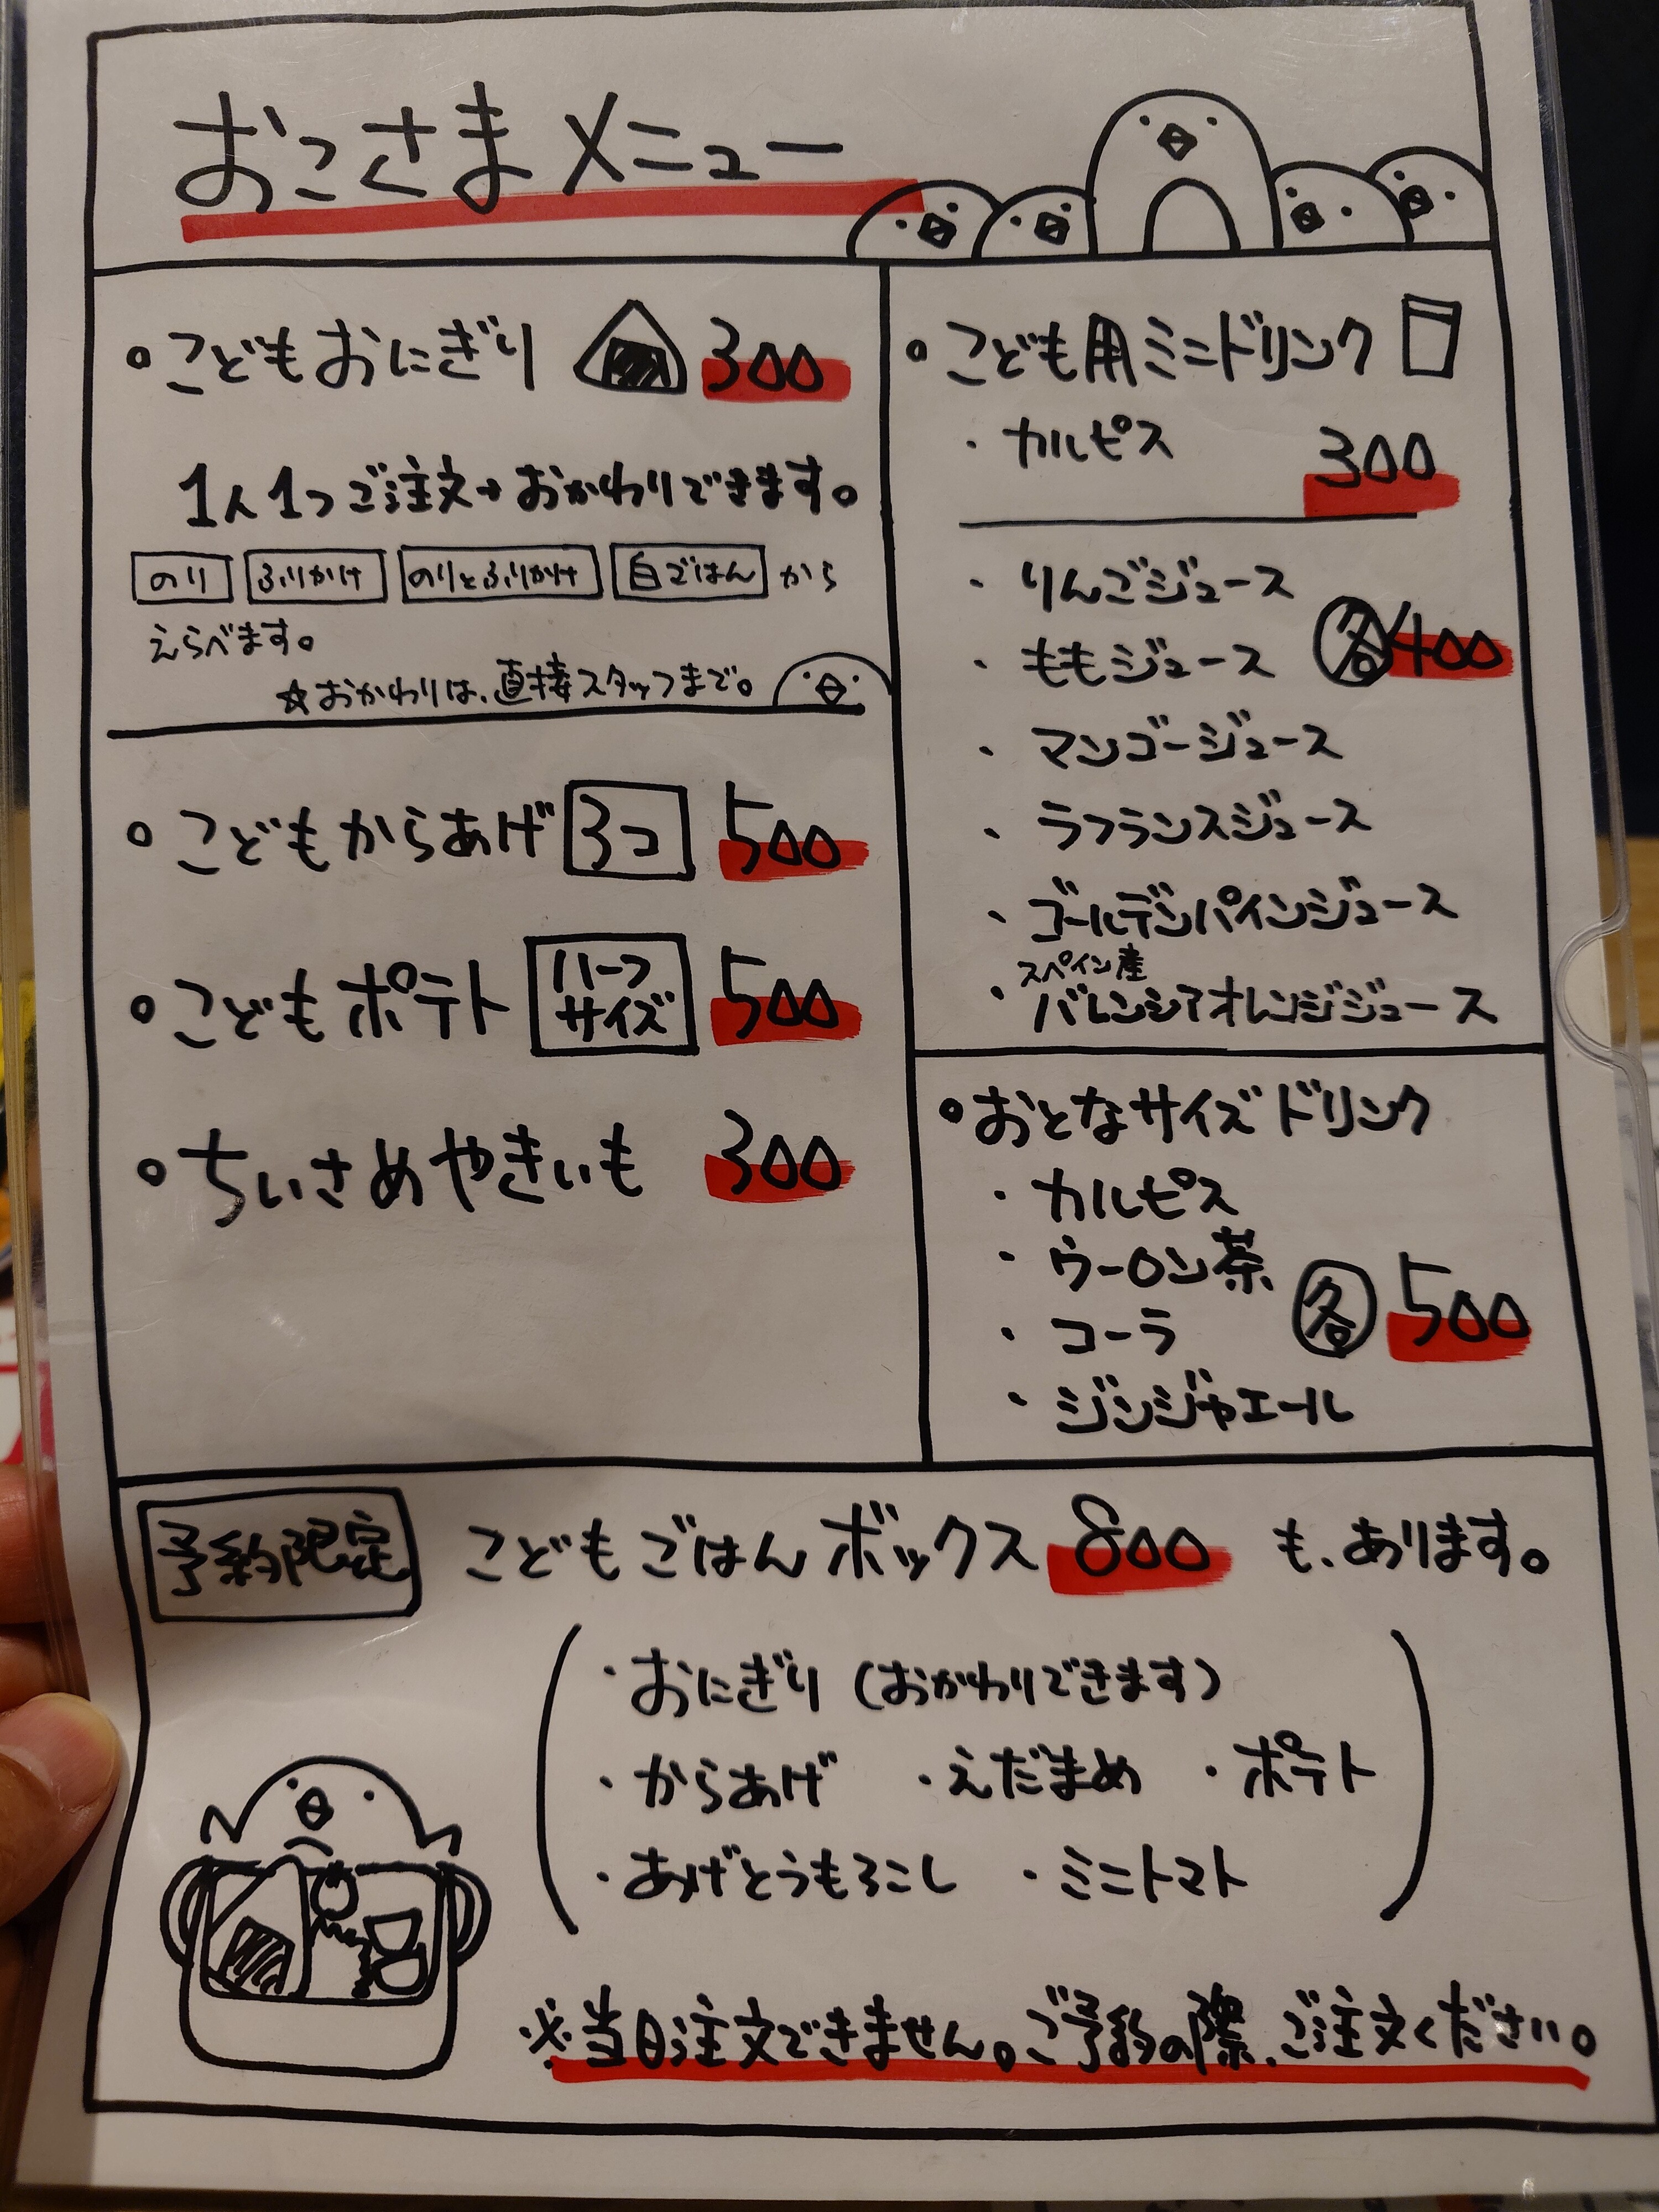 おこさまメニュー
・こどもおにぎり 300
1人1つご注文→おかわりできます。
のり ふりかけ のりとふりかけ 白ごはん から
えらべます。
☆おかわりは、直接スタッフまで。
・こどもからあげ 3コ 500
・こどもポテト ハーフサイズ 500
・ちいさめやきいも 300
・こども用ミニドリンク
・カルピス 300
・りんごジュース
・ももジュース 各400
・マンゴージュース
・ラフランスジュース
・ゴールデンパインジュース
スペイン産
・バレンシアオレンジジュース
・おとなサイズドリンク
・カルピス
・ウーロン茶
・コーラ 各500
・ジンジャエール
予約限定 こどもごはんボックス 800 も、あります。
・おにぎり(おかわりできます)
・からあげ ・えだまめ ・ポテト
・あげとうもろこし ・ミニトマト
※当日注文できません。ご予約の際、ご注文ください。